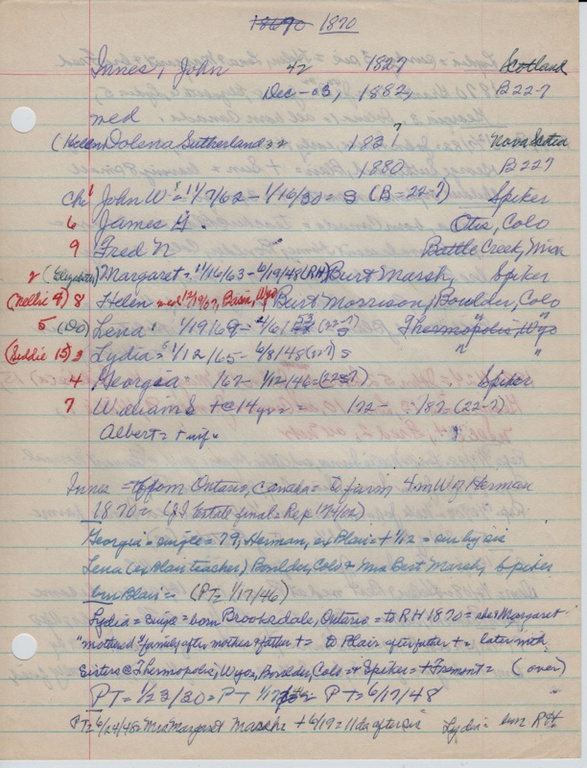 18690 1870
Innes, John 42 1827 Scotland
Dec-03, 1882, B 22-7
med
(Helen) Dolena Sutherland 32 1837? Nova Scotia
1880 B 227
Ch 1 John W = 1/7/62 - 1/16/30 = S (B-22-7) Spiker
6 James G. Otis, Colo
9 Fred N Battle Creek, Mich
2 (Elizabeth) Margaret = 1/16/63 - 6/19/48 (RH) Burt Marsh, Spiker
(Nellie 9) 8 Helen = md 12/19/07, Basin, Wyo Burt Morrison, Boulder, Colo
5 (Do) Lena 1/19/69 = 2/6/53 (22-7) S Thermopolis Wyo
(Biddie 15) 3 Lydia = 1/12/65 - 6/8/48 (22-7) S " "
4 Georgia = 67 - 1/12/46 = (22-7) Spiker
7 William S + @ 14 yrs = 172 - 187 - (22-7)
Albert = + wife
Innes = from Ontario, Canada = to farm 4m W of Herman
1870 = (J I Estate final = Rep 1/4/02)
Georgia = single = 79, Herman, ex Blair = + 1/12 = sur by sis
Lena (ex Blair teacher) Boulder, Colo + Mrs Bert Marsh, Spiker
bur Blair = (PT = 1/17/46)
Lydia = single = born Brooksdale, Ontario = to RH 1870 = she & Margaret
"mothered" family after mother & father + = to Blair after father + = later with
Sisters @ Thermopolis, Wyo, Boulder, Colo = & Spiker = + Fremont = (over)
PT = 1/23/30 = PT 1/17/46 = PT = 6/17/48 "
PT = 6/24/48 = Mrs Margaret Marsh = + 6/19 = 11 da after sis Lydia = bur RH